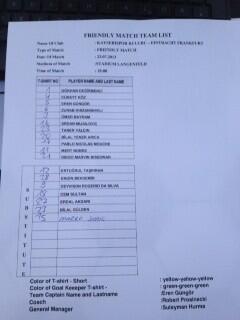 FRIENDLY MATCH TEAM LIST
Name Of Club : KAYSERISPOR KULUBU - EINTRACHT FRANKFURT
Type of Match : FRIENDLY MATCH
Date Of Match : 23.07.2013
Stadium of Match :STADIUM LANGENFELD
Time of Match : 18:00
T-SHIRT NO PLAYER NAME AND LAST NAME
1 GÖKHAN DEĞİRMENCİ
4 ZURAFF KÖZ
5 EREN GÜNGÖR
6 ZURAB KHIZANISHVILI
ÖMER BAYRAM
SRDAN MIJAILOVIC
23 TANER YALÇIN
BILAL YENER ARICA
PABLO NICOLAS MOUCHE
MERT NOBRE
DIEGO MARVIN BISESWAR
SUBSTITUTE
ERTUĞRUL TAŞKIRAN
EREN BEKDEMİR
CLEYTON ROGERIO DA SILVA
CEM SULTAN
ERDAL AKDARI
BILAL GÜLDEN
Color of T-shirt - Short : yellow-yellow-yellow
Color of Goal Keeper T-shirt - : green-green-green
Team Captain Name and Lastname :Eren Güngör
Coach :Robert Prosinecki
General Manager :Suleyman Hurma